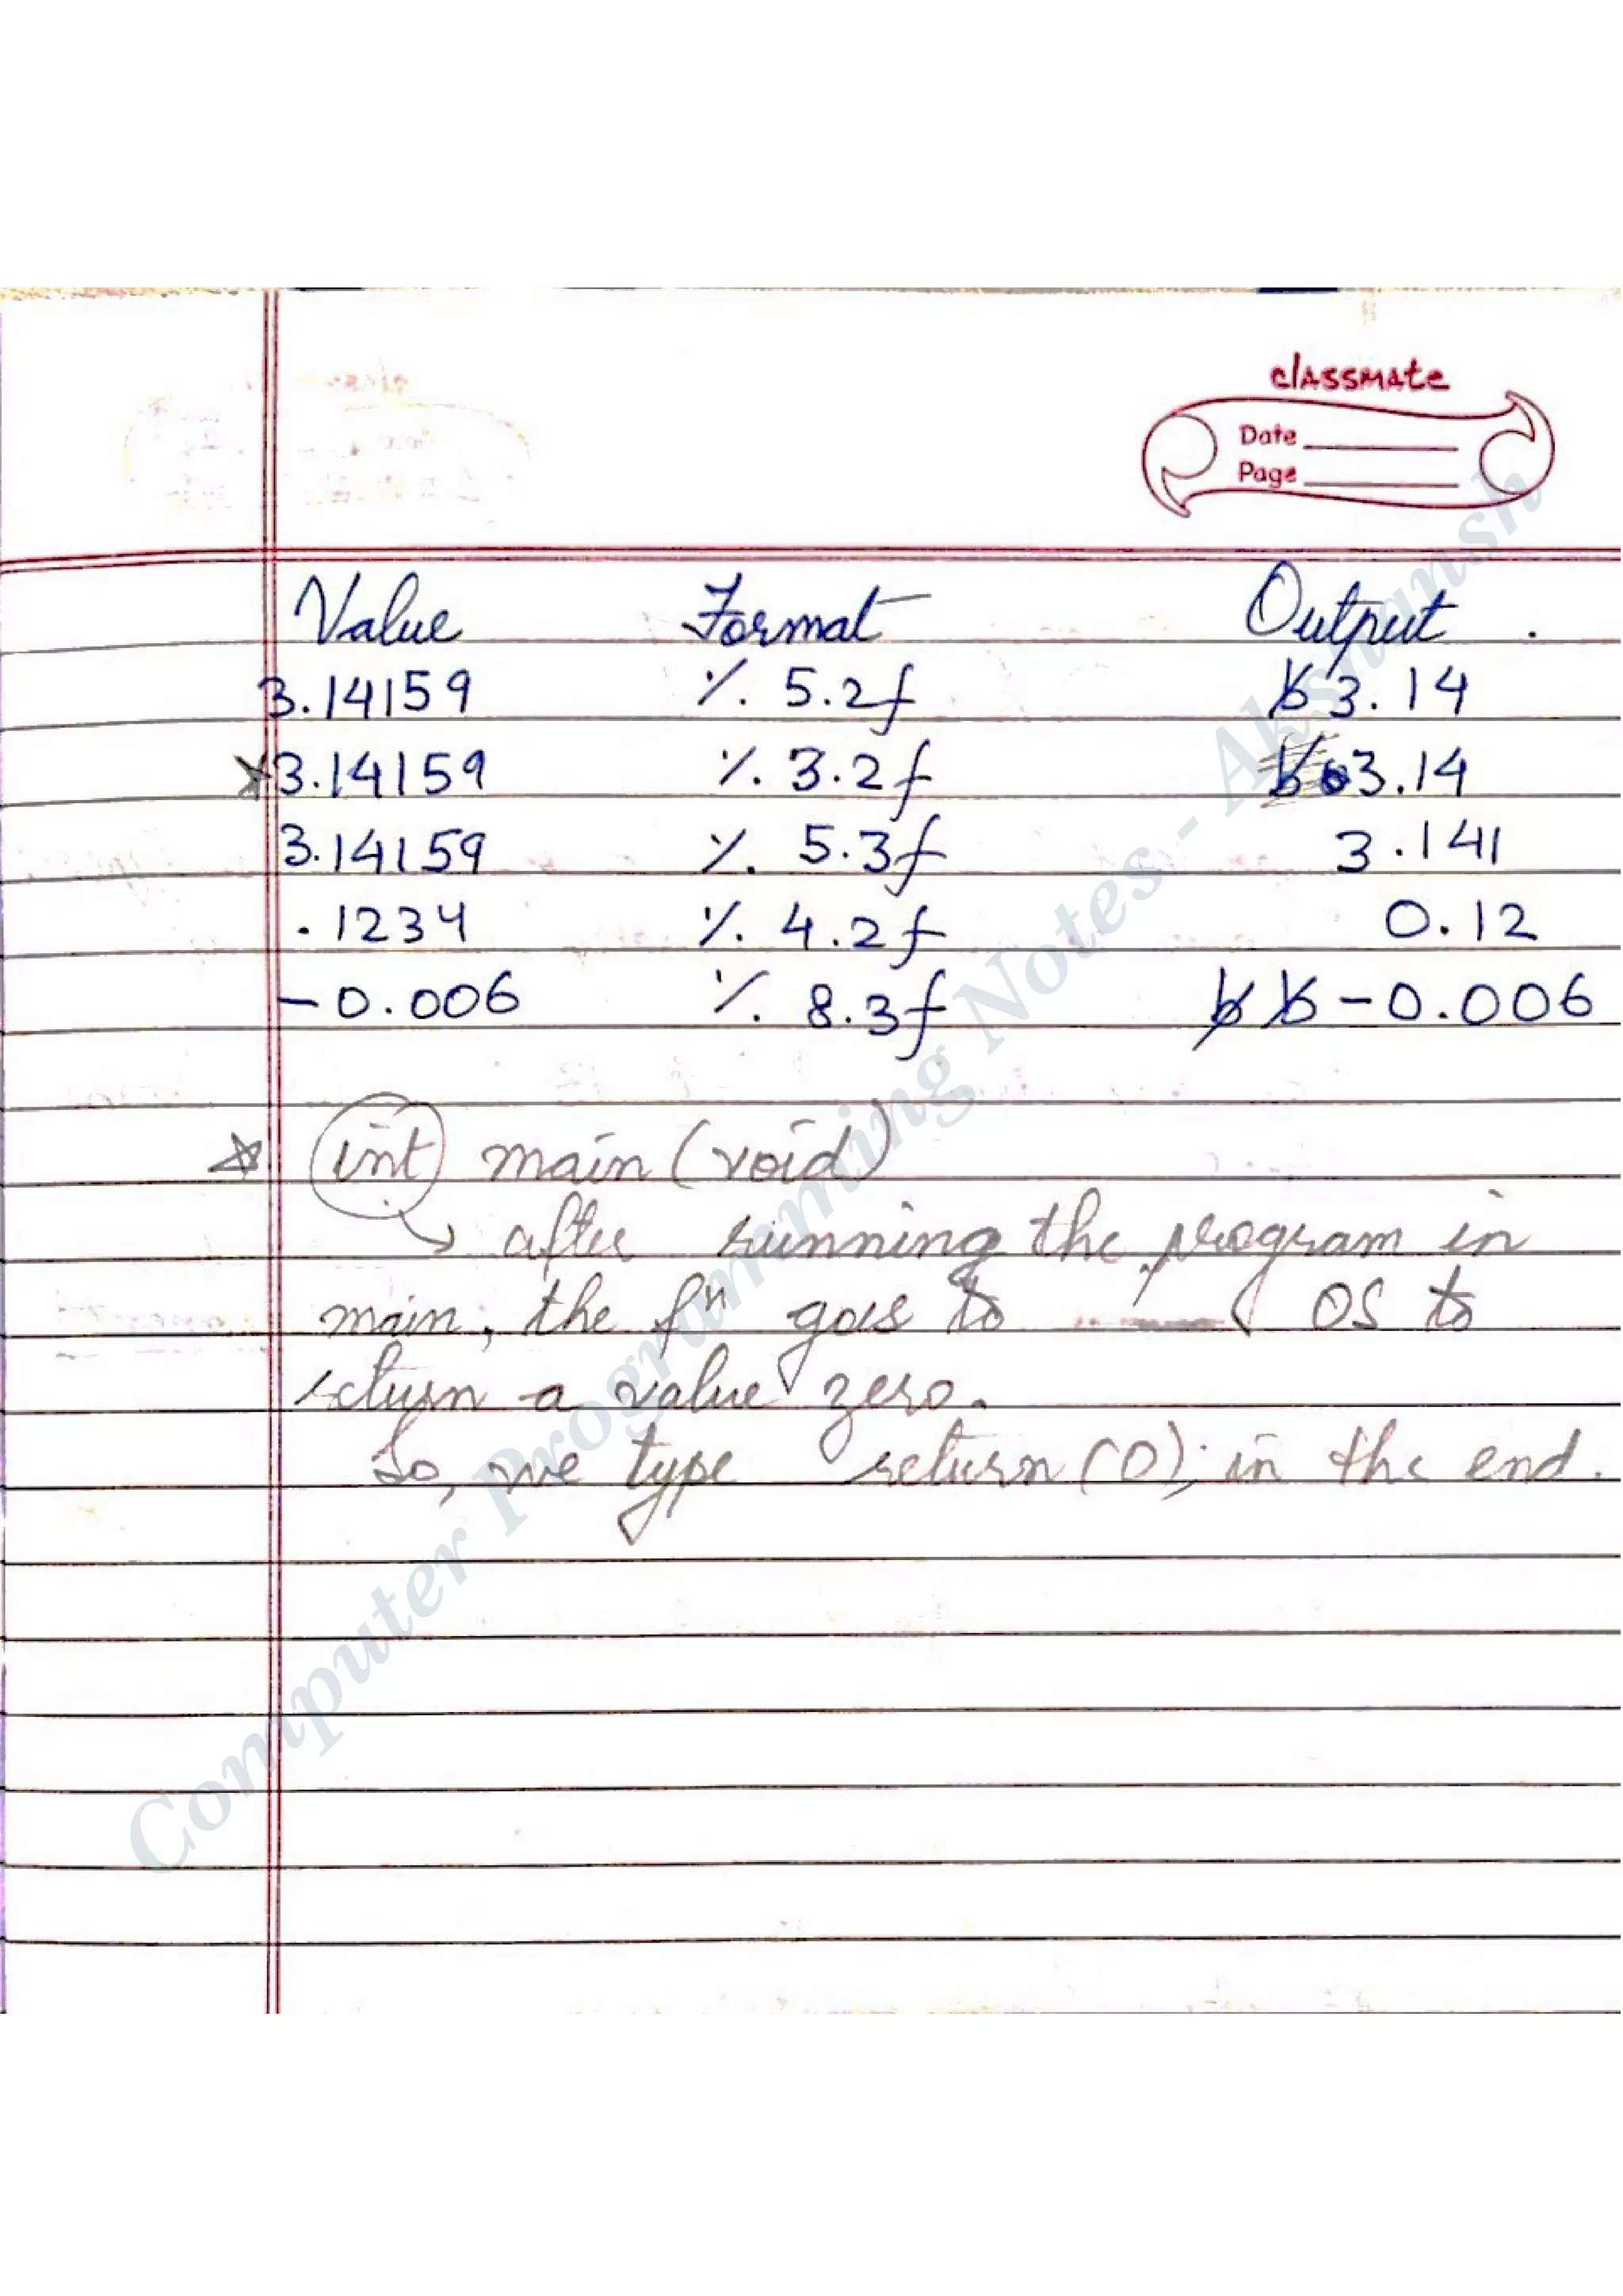 classmate
Date
Page
Value Format Output .
3.14159 %. 5.2f b 3.14
3.14159 %. 3.2f 3.14
3.14159 %. 5.3f 3.141
.1234 %. 4.2f 0.12
-0.006 %. 8.3f b b -0.006
int main (void)
→ after running the program in
main, the fⁿ goes to OS to
return a value zero.
So, we type return (0); in the end.
Computer Programming Notes - Akshansh